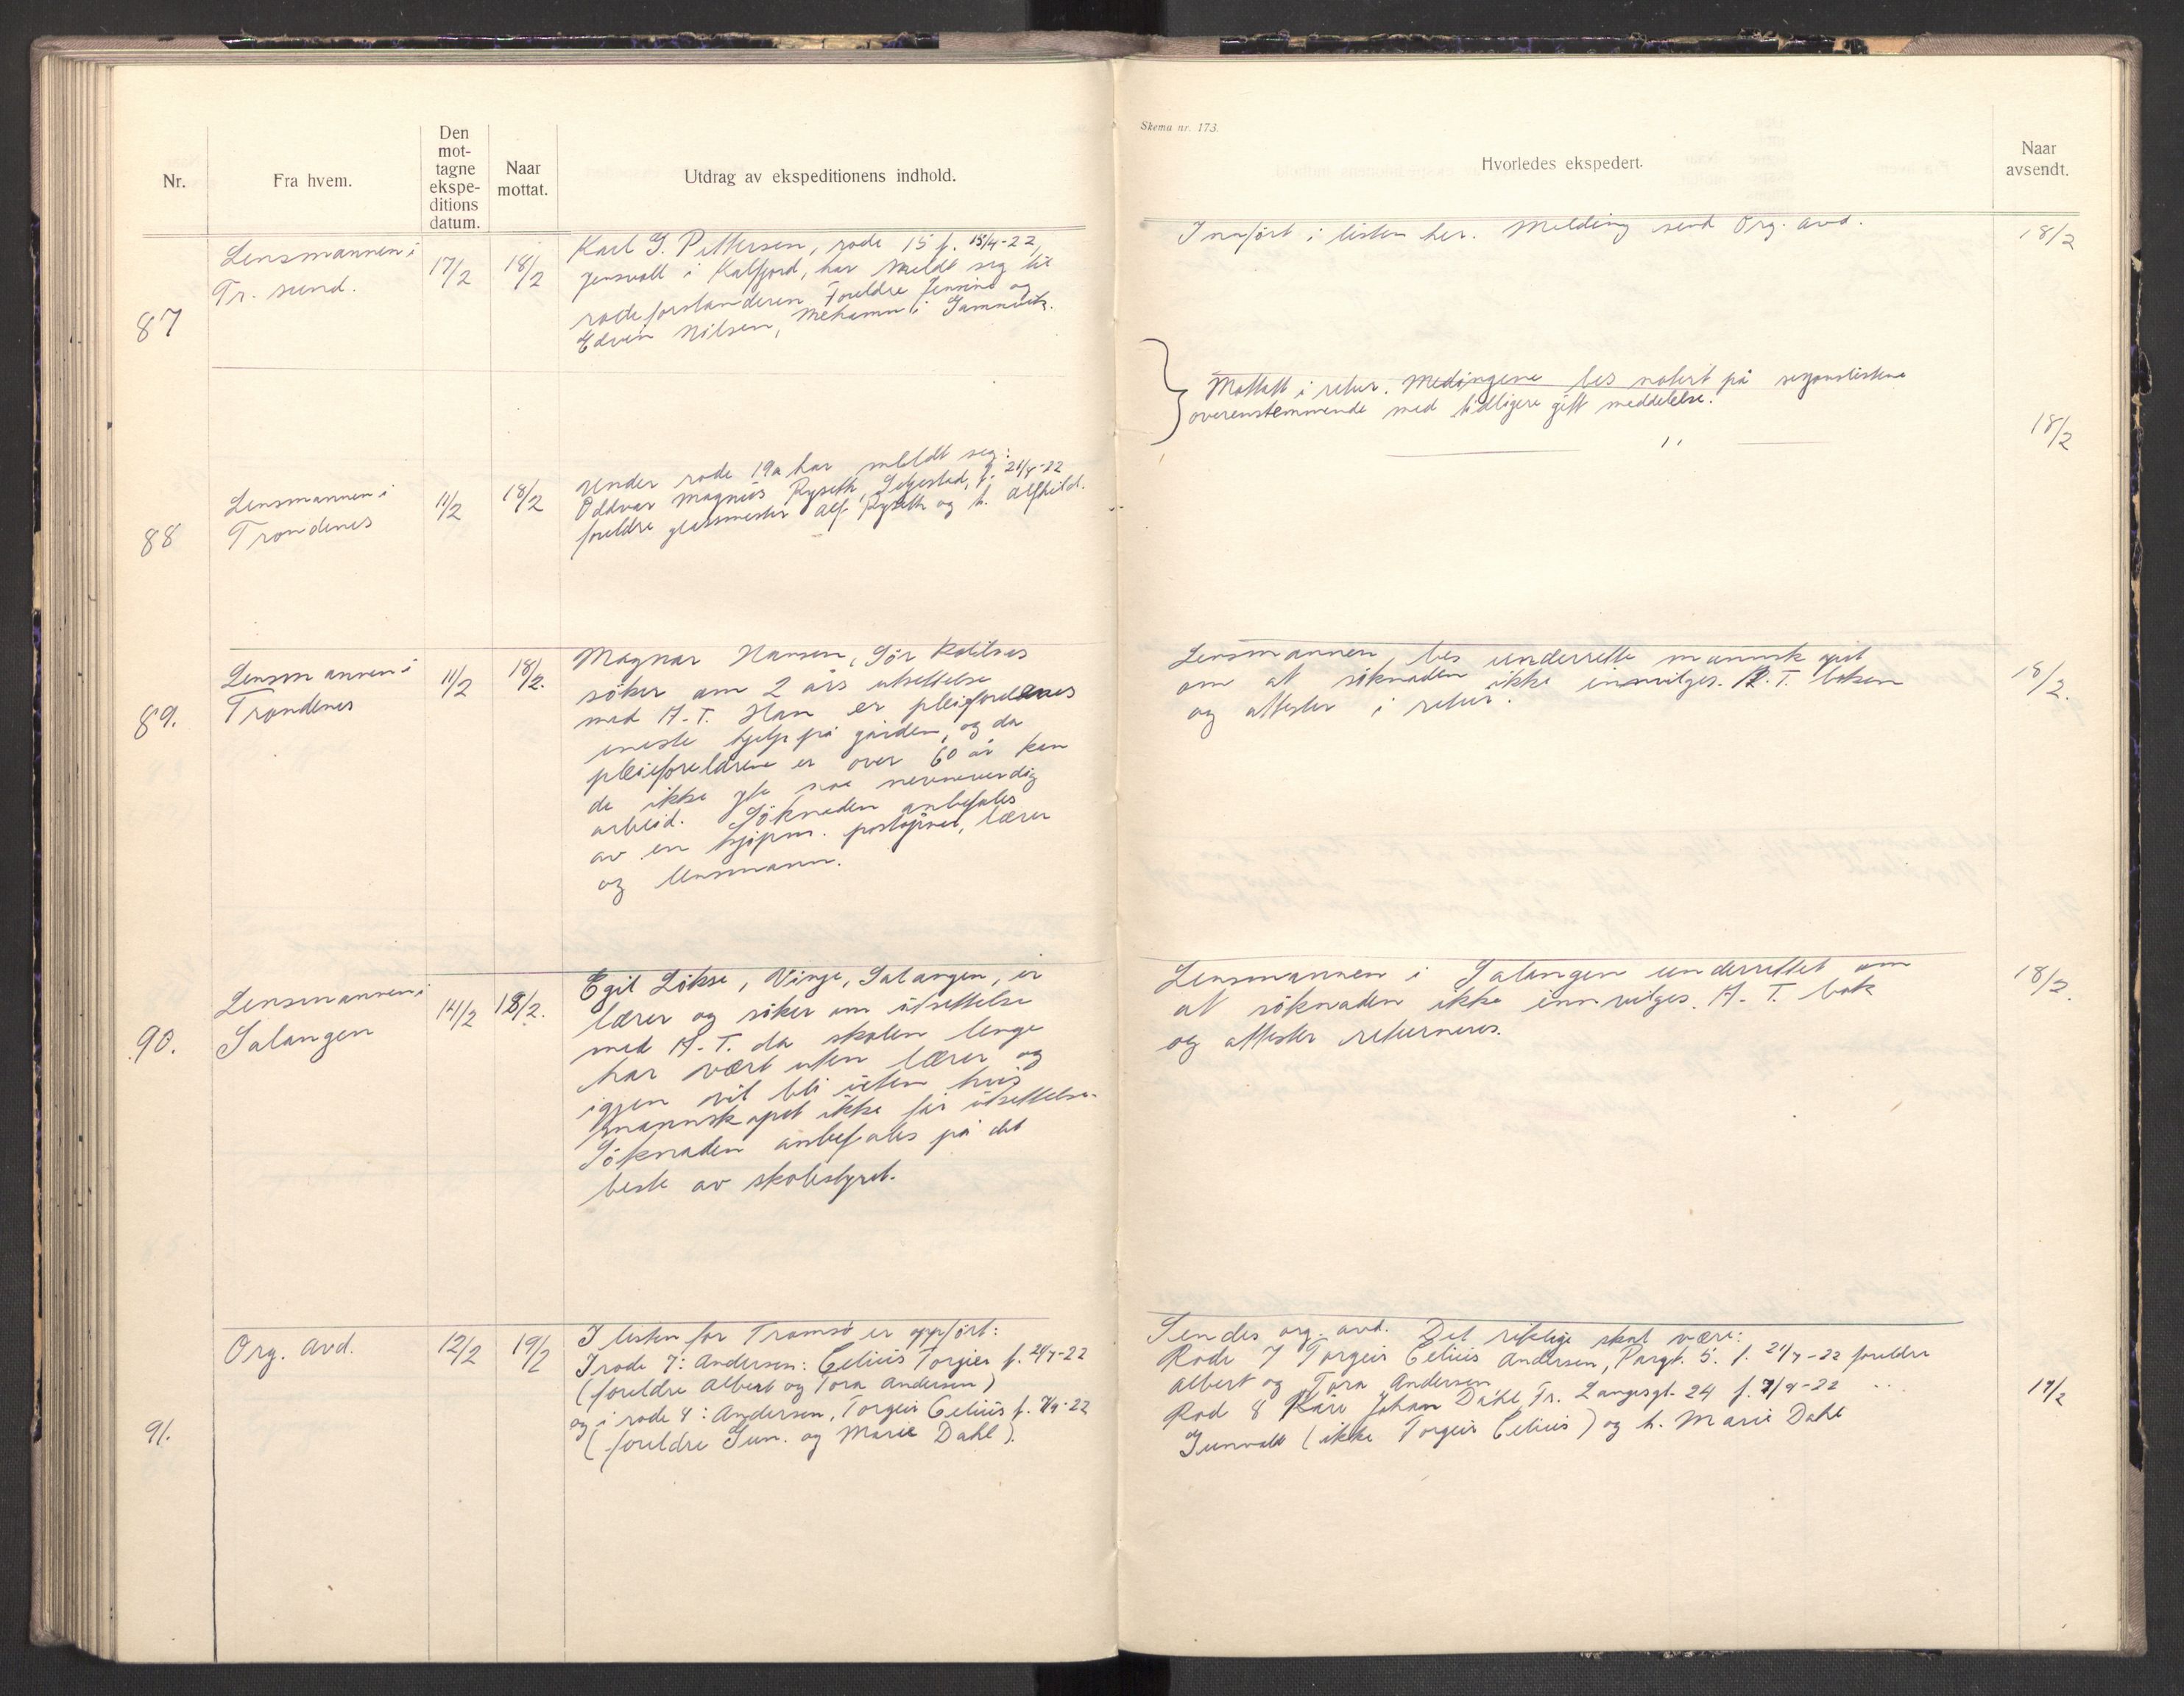 Nr.
Fra hvem.
Den mot-
tagne
ekspe-
ditions
datum.
Naar
mottat.
Utdrag av ekspeditionens indhold.
Skema nr. 173.
Hvorledes ekspedert.
Naar
avsendt.
87
Lensmannen i
Tr. sund.
17/2
18/2
Karl G. Pettersen, rode 15 f. 18/4-22,
Jensvoll i Kalfjord, har meldt seg til
rodeforstanderen. Foreldre Jensine og
Edvin Nilsen, Mehamn i Gamvik.
Innført i listen her. Melding send Org. avd.
18/2
Mottatt i retur. Medingene bes notert på
overenstemmende med tidligere gitt meddelelse.
18/2
88
Lensmannen i
Trondenes
11/2
18/2
Under rode 19a har meldt seg:
Oddvar Magnus Ryseth, f. 21/4-22
foreldre glassmester Alf Ryseth og h. Alfhild.
— ,, —
89.
Lensmannen i
Trondenes
11/2
18/2.
Magnar Hansen, Sør
søker om 2 års utsettelse
med A.-T. Han er pleieforeldrenes
eneste hjelp på gården, og da
pleieforeldrene er over 60 år kan
de ikke yte noe nevneverdig
arbeid. Søknaden anbefales
av en kjøpm. poståpner, lærer
og lensmann.
Lensmannen bes underrette mannskapet
om at søknaden ikke innvilges. A.T. boken
og attester i retur.
18/2.
90.
Lensmannen i
Salangen
14/2
18/2.
Egil Løkse, Vinje, Salangen, er
lærer og søker om utsettelse
med A.-T. da skolen lenge
har vært uten lærer og
igjen vil bli uten hvis
mannskapet ikke får utsettelse.
Søknaden anbefales på det
beste av skolestyret.
Lensmannen i Salangen underrettet om
at søknaden ikke innvilges. A.-T. bok
og attester returneres.
18/2.
91.
Org. avd.
12/2
19/2
I listen for Tromsø er oppført:
I rode 7: Andersen: Celius Torgier f. 21/7-22
(foreldre Albert og Tora Andersen)
og i rode 8: Andersen, Torgeir Celius f. 7/9-22
(foreldre Gun. og Marie Dahl).
Sendes org. avd. Det riktige skal være:
Rode 7 Torgeir Celius Andersen, Pargt. 5. f. 21/7-22 foreldre
Albert og Tora Andersen
Rod 8 Kåre Johan Dahl, Fr. Langesgt. 24 f. 7/9-22 ...
Gunvald (ikke Torgeir Celius) og h. Marie Dahl
19/2